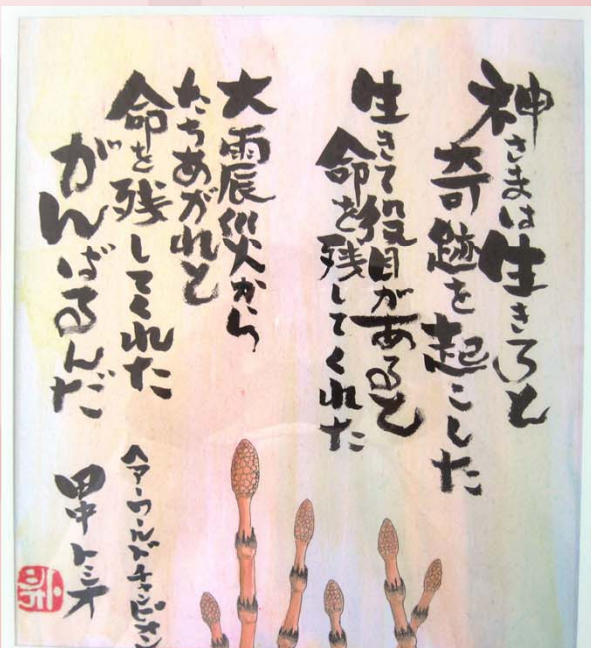 神さまは生きろと
奇跡を起こした
生きて役目があると
命を残してくれた
大震災から
たちあがれと
命を残してくれた
がんばるんだ
ヘアーワールドチャンピオン
田中トシオ